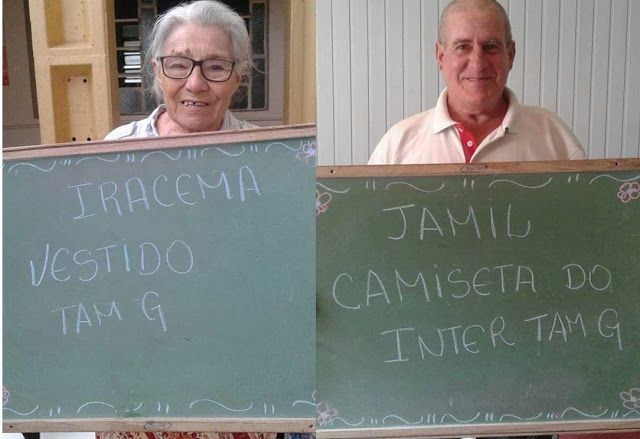 IRACEMA
VESTIDO
TAM G
JAMIL
CAMISETA DO
INTER TAM G